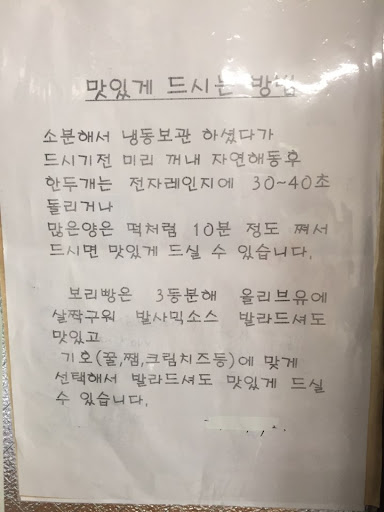 맛있게 드시는 방법
소분해서 냉동보관 하셨다가
드시기전 미리 꺼내 자연해동후
한두개는 전자레인지에 30~40초
돌리거나
많은양은 떡처럼 10분 정도 쪄서
드시면 맛있게 드실 수 있습니다.
보리빵은 3등분해 올리브유에
살짝구워 발사믹소스 발라드셔도
맛있고
기호(꿀,쨈,크림치즈등)에 맞게
선택해서 발라드셔도 맛있게 드실
수 있습니다.